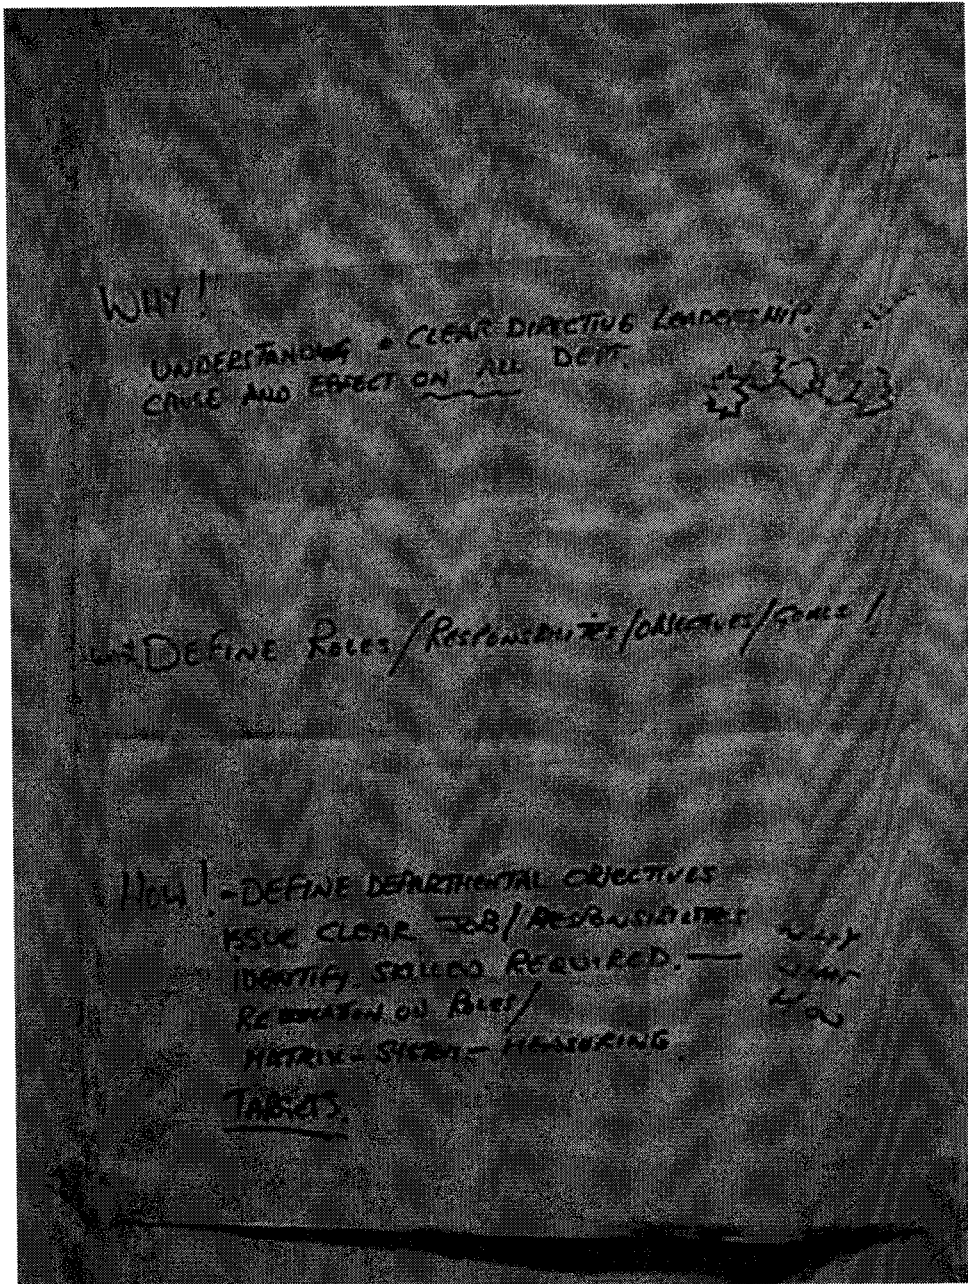 WHY!
UNDERSTANDING & CLEAR DIRECTIVE LEADERSHIP.
CAUSE AND EFFECT ON ALL DEPT.
DEFINE ROLES/RESPONSIBILITIES/OBJECTIVES/GOALS!
HOW! - DEFINE DEPARTMENTAL OBJECTIVES
ISSUE CLEAR JOB/RESPONSIBILITIES
IDENTIFY SKILLED REQUIRED. —
ON ROLES/
MATRIX - - MEASURING
WHY